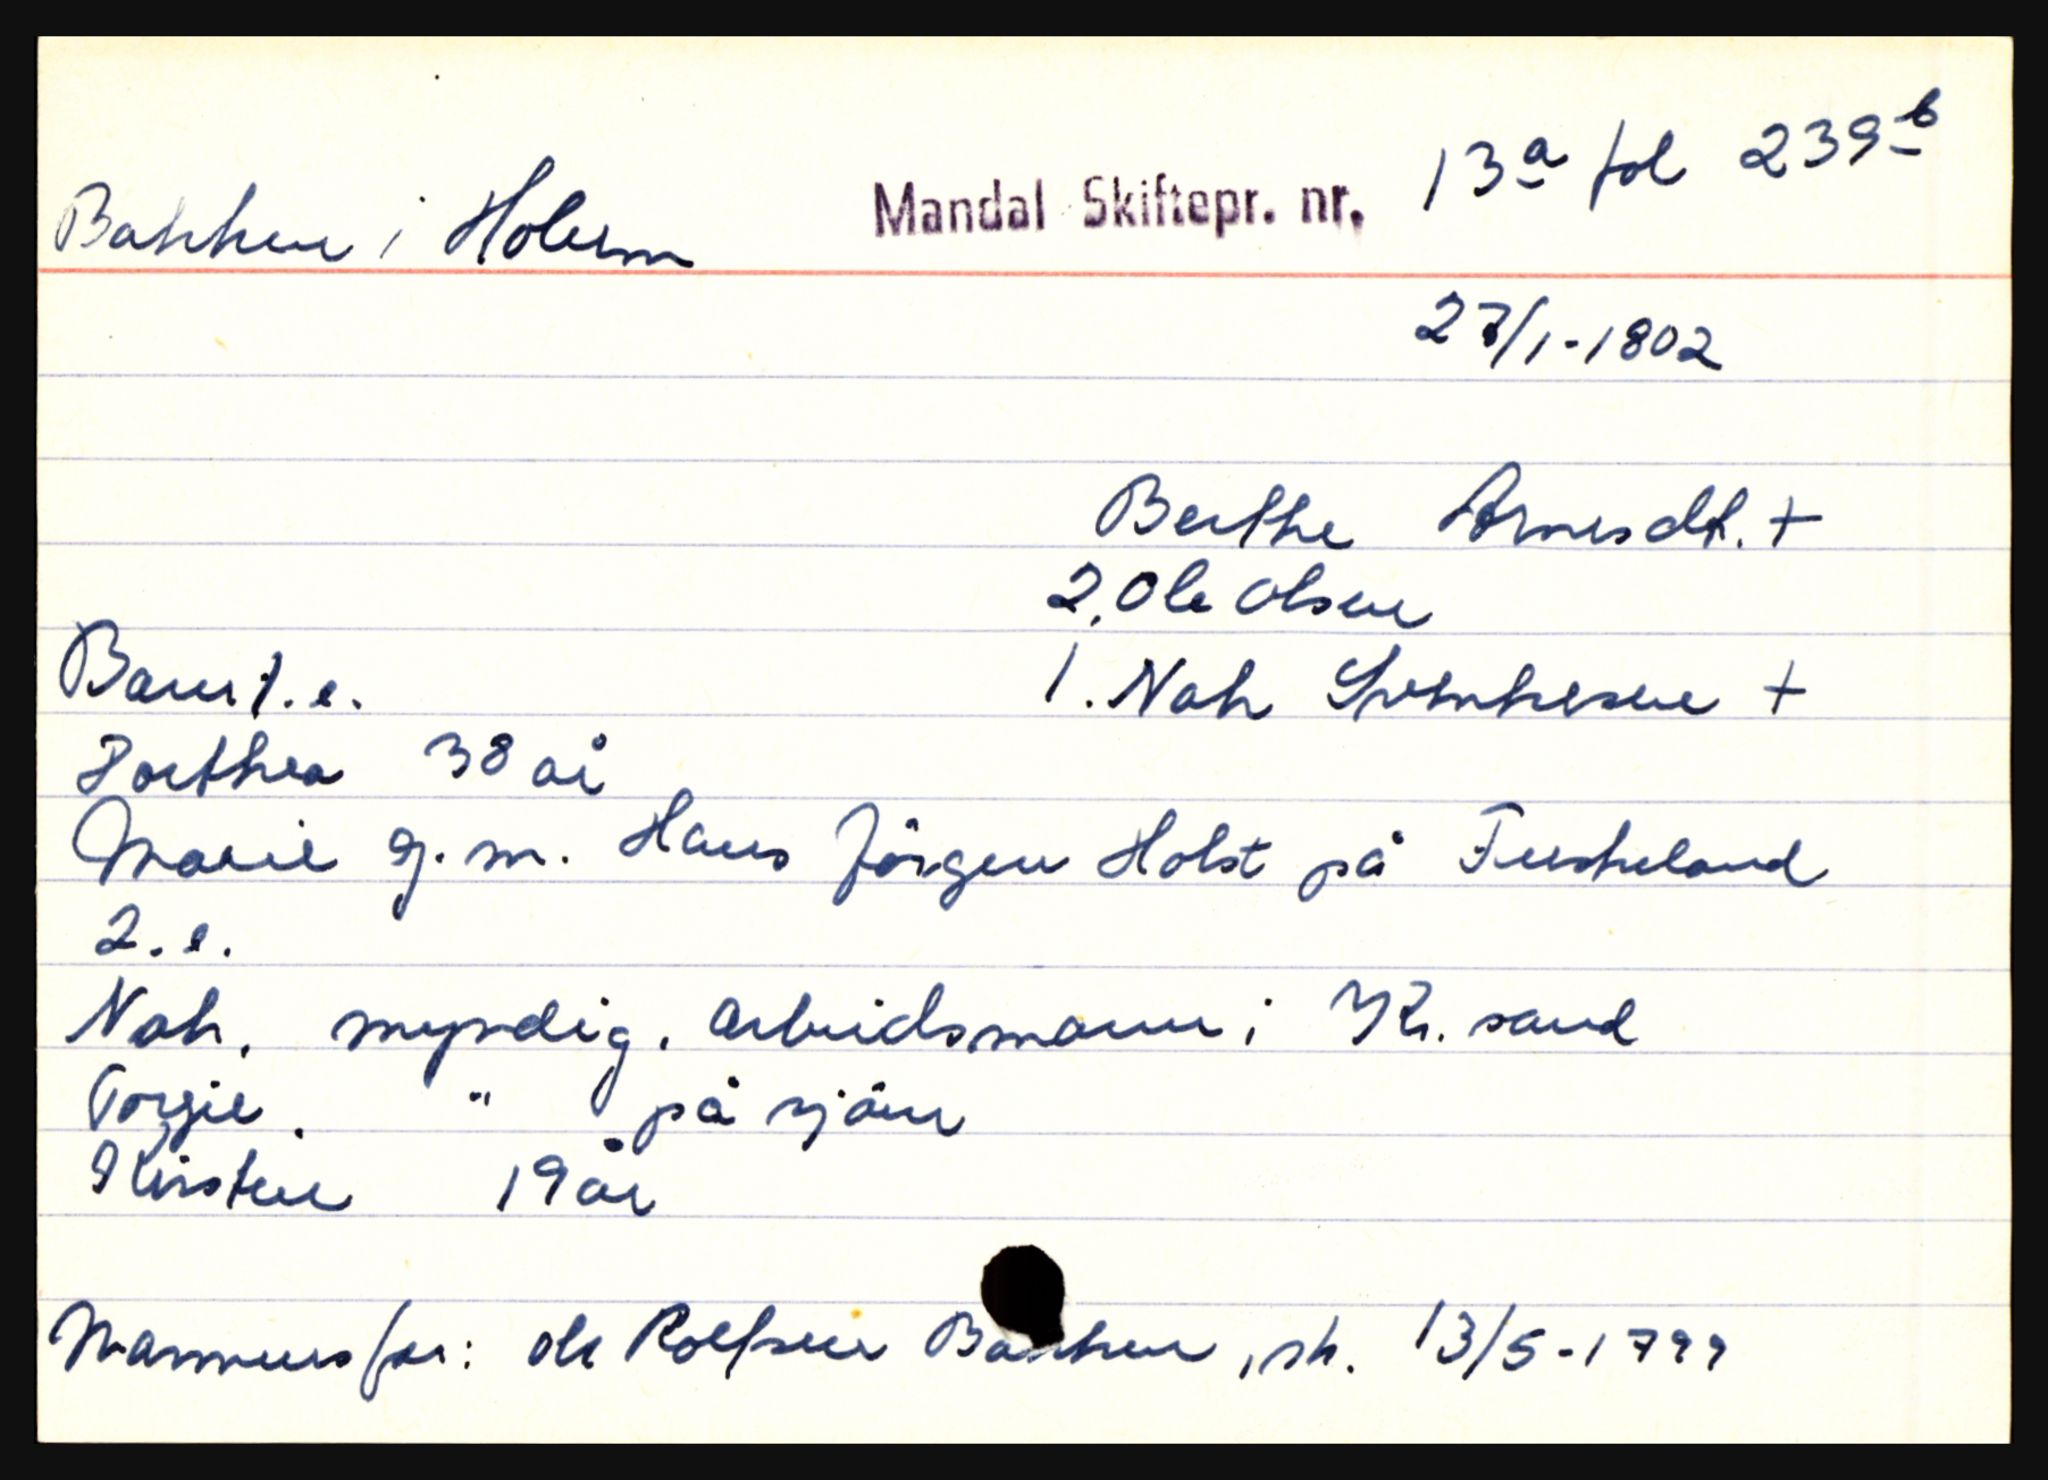 Bakken i Holum Mandal Skiftepr. nr. 13a fol 239b
27/1-1802
Berthe Arnesdt. +
2. Ole Olsen
Barn 1. e. 1. Nah +
Dorthea 38 år
Marie g. m. Hans Jörgen Holst på Fuskeland
2. e.
Nah, myndig. arbeidsmann i Kr. sand
Torgie. " på sjöen
Kirsten 19 år
Mannens far: Ole Rolfsen Bakken, sk. 13/5-1799